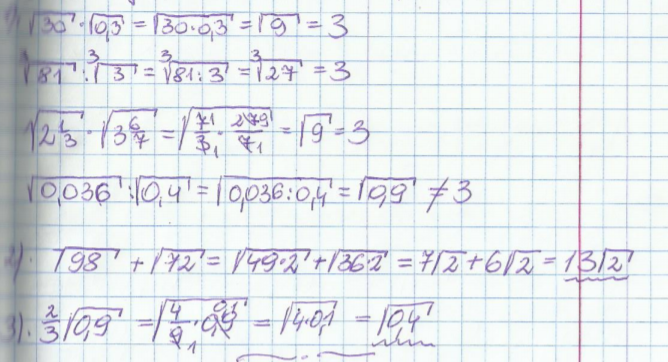 1) √30 · √0,3 = √30·0,3 = √9 = 3
∛81 : ∛3 = ∛81:3 = ∛27 = 3
√2 1/3 · √3 6/7 = √7/3 · 27/7 = √9 = 3
√0,036 : √0,4 = √0,036:0,4 = √0,9 ≠ 3
2). √98 + √72 = √49·2 + √36·2 = 7√2 + 6√2 = 13√2
3). 2/3 √0,9 = √4/9 · 0,9 = √4·0,1 = √0,4